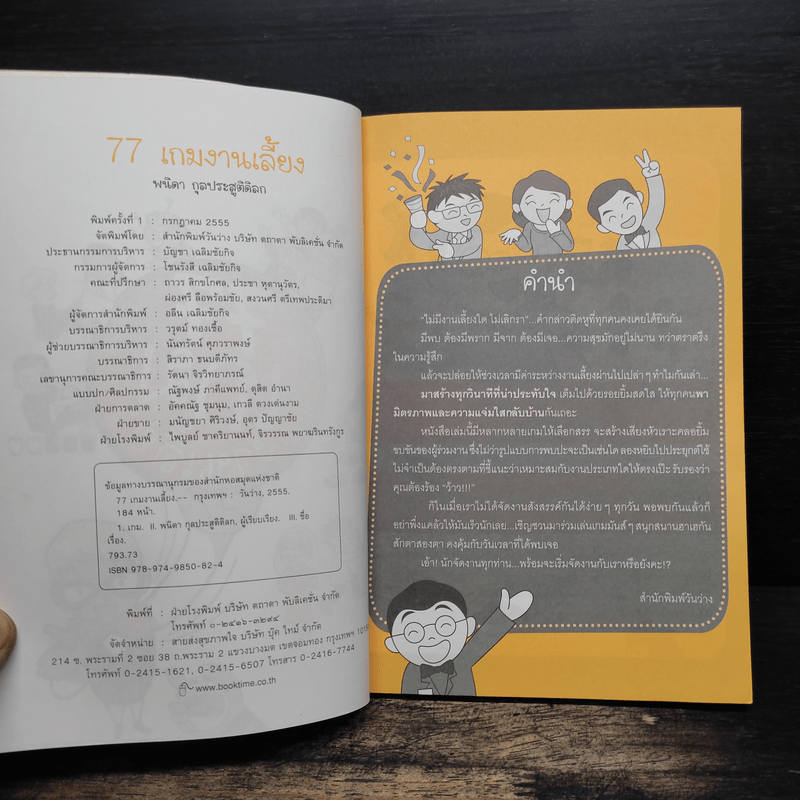 77 เกมงานเลี้ยง
พนิดา กุลประสูติดิลก
พิมพ์ครั้งที่ 1 : กรกฎาคม 2555
จัดพิมพ์โดย : สำนักพิมพ์วันว่าง บริษัท ตถาตา พับลิเคชั่น จำกัด
ประธานกรรมการบริหาร : บัญชา เฉลิมชัยกิจ
กรรมการผู้จัดการ : โชนรังสี เฉลิมชัยกิจ
คณะที่ปรึกษา : ถาวร สิกขโกศล, ประชา หุตานุวัตร,
ผ่องศรี ลือพร้อมชัย, สงวนศรี ตรีเทพประติมา
ผู้จัดการสำนักพิมพ์ : อลีน เฉลิมชัยกิจ
บรรณาธิการบริหาร : วรุตม์ ทองเชื้อ
ผู้ช่วยบรรณาธิการบริหาร : นันทรัตน์ ศุภวราพงษ์
บรรณาธิการ : สิราภา ธนบดีภัทร
เลขานุการคณะบรรณาธิการ : รัตนา จิรวิทยาภรณ์
แบบปก/ศิลปกรรม : ณัฐพงษ์ ภาคีแพทย์, ดุสิต อำนา
ฝ่ายการตลาด : อัคคณัฐ ชุมนุม, เกวลี ดวงเด่นงาม
ฝ่ายขาย : มนัญชยา ศิริวงษ์, อุดร ปัญญาชัย
ฝ่ายโรงพิมพ์ : ไพบูลย์ ชาคริยานนท์, จิรวรรณ พยาฆรินทรังกูร
ข้อมูลทางบรรณานุกรมของสำนักหอสมุดแห่งชาติ
77 เกมงานเลี้ยง.-- กรุงเทพฯ : วันว่าง, 2555.
184 หน้า.
1. เกม. II. พนิดา กุลประสูติดิลก, ผู้เรียบเรียง. III. ชื่อ
เรื่อง.
793.73
ISBN 978-974-9850-82-4
พิมพ์ที่ : ฝ่ายโรงพิมพ์ บริษัท ตถาตา พับลิเคชั่น จำกัด
โทรศัพท์ ๐-๒๔๑๖-๓๒๙๔
จัดจำหน่าย : สายส่งสุขภาพใจ บริษัท บุ๊ค ไทม์ จำกัด
214 ซ. พระรามที่ 2 ซอย 38 ถ.พระราม 2 แขวงบางมด เขตจอมทอง กรุงเทพฯ 1015
โทรศัพท์ 0-2415-1621, 0-2415-6507 โทรสาร 0-2416-7744
www.booktime.co.th
คำนำ
"ไม่มีงานเลี้ยงใด ไม่เลิกรา"...คำกล่าวติดหูที่ทุกคนคงเคยได้ยินกัน
มีพบ ต้องมีพราก มีจาก ต้องมีเจอ...ความสุขมักอยู่ไม่นาน ทว่าตราตรึง
ในความรู้สึก
แล้วจะปล่อยให้ช่วงเวลามีค่าระหว่างงานเลี้ยงผ่านไปเปล่าๆ ทำไมกันเล่า...
มาสร้างทุกวินาทีที่น่าประทับใจ เติมไปด้วยรอยยิ้มสดใส ให้ทุกคนพา
มิตรภาพและความแจ่มใสกลับบ้านกันเถอะ
หนังสือเล่มนี้มีหลากหลายเกมให้เลือกสรร จะสร้างเสียงหัวเราะคลอยิ้ม
ขบขันของผู้ร่วมงาน ซึ่งไม่ว่ารูปแบบการพบปะจะเป็นเช่นใด ลองหยิบไปประยุกต์ใช้
ไม่จำเป็นต้องตรงตามที่ชี้แนะว่าเหมาะสมกับงานประเภทใดให้ตรงเป๊ะ รับรองว่า
คุณต้องร้อง "ว้าว!!!"
ก็ในเมื่อเราไม่ได้จัดงานสังสรรค์กันได้ง่ายๆ ทุกวัน พอพบกันแล้วก็
อย่าพึ่งแคล้วให้มันเร็วนักเลย...เชิญชวนมาร่วมเล่นเกมมันส์ๆ สนุกสนานฮาเฮกัน
สักตาสองตา คงคุ้มกับวันเวลาที่ได้พบเจอ
เอ้า! นักจัดงานทุกท่าน...พร้อมจะเริ่มจัดงานกับเราหรือยังคะ!?
สำนักพิมพ์วันว่าง